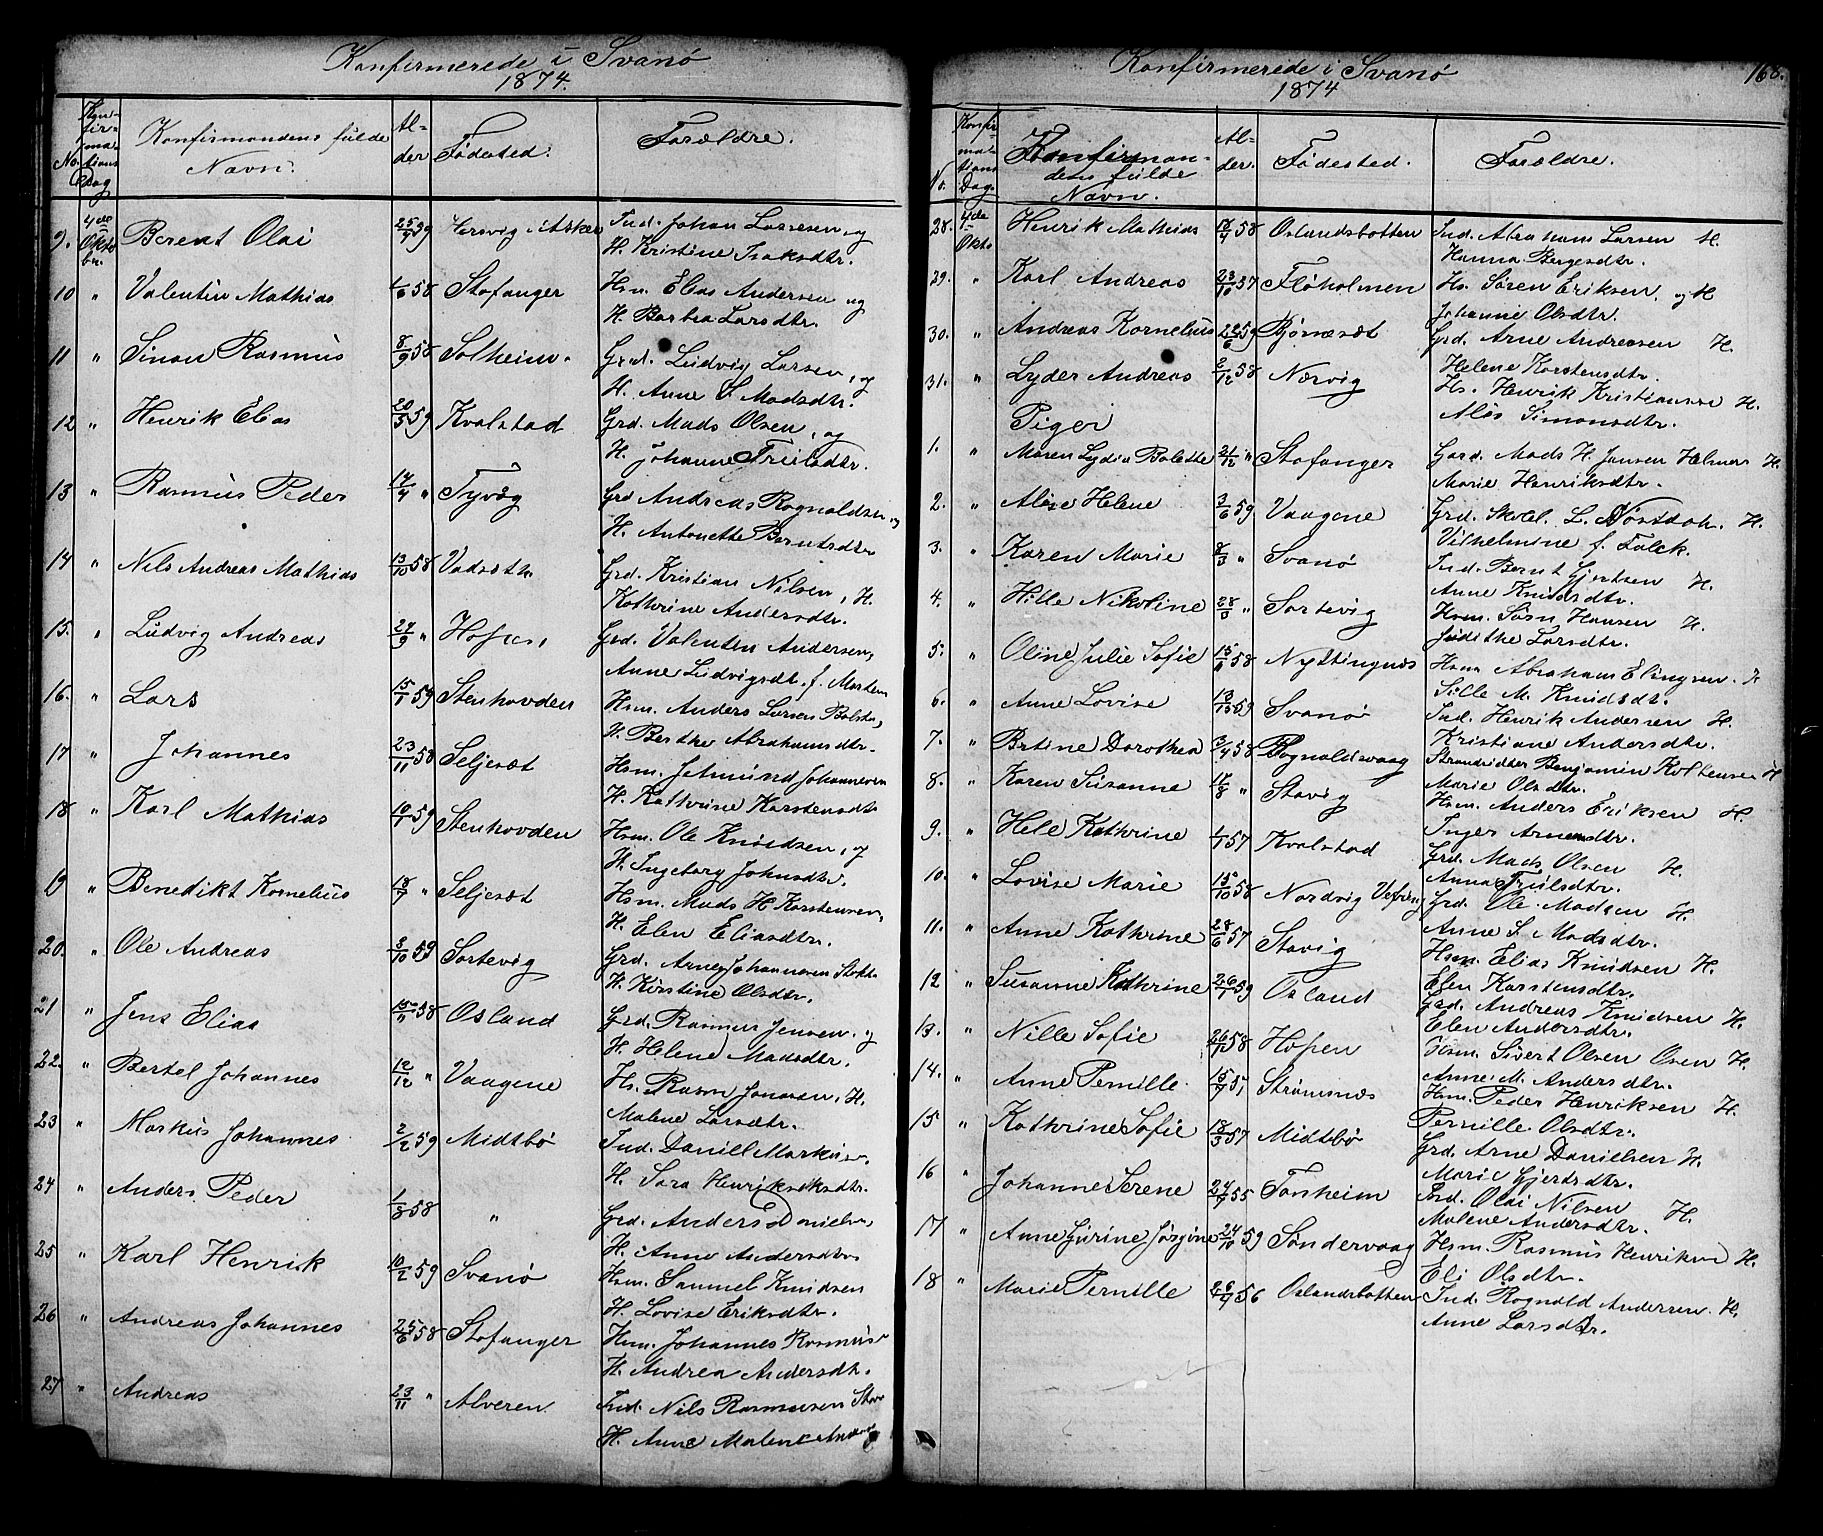 Konfirmerede i Svanø
1874.
No.
Konfirmations Dag
Konfirmandens fulde Navn.
Alder
Fødested.
Forældre.
9. 4de Oktober Berent Olai 25/7 59 Hersvig i Ind. Johan Lassesen og
H. Kristine Isaksdtr.
10 " Valentin Mathias 4/6 58 Stofanger Hsm. Elias Andersen og
H. Barbra Larsdtr.
11 " Simon Rasmus 8/9 58 Solheim. Grd. Ludvig Larsen, og
H. Anne S. Madsdtr.
12 " Henrik Elias 20/5 59 Kvalstad Grd. Mads Olsen, og
H. Johanne Trulsdtr.
13 " Rasmus Peder 17/4 " Tyvæg Grd Andreas Rognaldsen og
H. Antonette Berntsdtr
14 " Nils Andreas Mathias 13/10 58 Vadseth. Grd. Kristian Nilsen, H.
Kathrine Andersdtr.
15. " Ludvig Andreas 27/9 " Grd. Valentin Andersen,
Anne Ludvigsdt. f.
16. " Lars 15/1 59 Stenhovden Hsm. Anders Larsen
H. Berthe Abrahamsdtr.
17 " Johannes 23/11 58 Seljesæt Hsm. Jetmund Johannesen
H. Kathrine Karstensdt
18 " Karl Mathias 19/1 59 Stenhovden Hsm. Ole Knudsen, og
H. Ingeborg Johnsdtr.
19 " Benedikt Kornelius 18/7 " Seljesæt Hsm. Mads H Karstensen,
H. Elen Eliasdtr.
20. " Ole Andreas 8/10 59 Sortevig Grd. Arne Johannesen
H. Kirstine Olsdtr.
21 " Jens Elias 15/11 58 Osland Grd. Rasmus Jensen og
H. Helene Madsdtr.
22. " Bertel Johannes 12/12 " Vaagene Hs. Rasm Jonasen, H.
Malene Larsdtr.
23 " Markus Johannes 2/2 59 Midtbø Ind. Daniel
H. Sara Henriksdtr.
24 " Anders Peder 1/8 58 " Grd. Anders Danielsen,
H. Anne Andersdtr
25 " Karl Henrik 10/2 59 Svanø Hsm. Samuel Knudsen
H. Lovise Eriksdtr.
26 " Andreas Johannes 25/6 58 Stofanger Hsm. Johannes
H. Andrea Andersdtr.
27 " Andreas 23/11 " Alveren Ind. Nils Rasmusen
H. Anne Malene
Konfirmerede i Svanø
1874
168.
No.
Konfirmations Dag.
Konfirmandens fulde Navn.
Alder.
Fødested.
Forældre.
28. 4de Oktb Henrik Mathias 18/4 58 Oslandsbotten Ind. Abraham Larsen H.
Hanna Bergesdtr.
29. " Karl Andreas 23/10 57 Floholmen Hs. Søren Eriksen, og H
Johanne Olsdtr.
30. " Andreas Kornelius 22/6 59 Bjønesæt Grd. Arne Andreasen H.
Helene Karstensdtr.
31. " Lyder Andreas 2/12 58 Nærvig Hs. Henrik Kristiansen H.
Alis Simonsdtr.
Piger
1. " Maren Lydia Bolette 2/12 " Stofanger Gard. Mads H. Jansen Helmer H.
Marie Henriksdtr.
2. " Alise Helene 3/6 59 Vaagene Grd. Skoel. L. H.
Vilhelmine f. Falck.
3. " Karen Marie 8/3 " Svanø Ind. Bernt Gjertsen H.
Anne Knudsdtr.
4. " Hille Nikoline 28/8 " Sortevig Hsm. Søren Hansen H.
Judithe Larsdtr.
5. " Oline Julie Sofie 15/9 58 Nyttingnes Hsm Abraham Elingsen. H
Sille M. Knudsdt.
6. " Anne Lovise 13/10 59 Svanø Ind. Henrik Andersen H.
Kristiane Andersdtr.
7. " Birtine Dorothea 3/4 58 Rognaldsvaag Strandsidder Benjamin H
Marie Olsdtr.
8. " Karen Susanne 17/8 " Stavig Hsm. Anders Eriksen H.
Inger Arnesdtr.
9. " Hele Kathrine 4/1 57 Kvalstad Grd. Mads Olsen H.
Anna Trulsdtr.
10. " Lovise Marie 15/10 58 Nordvig Vefring Grd. Ole Madsen H.
Anne S. Madsdtr.
11. " Anne Kathrine 28/6 57 Stavig Hsm. Elias Knudsen H.
Elen Karstensdtr.
12 " Susanne Kathrine 26/1 59 Osland Grd. Andreas Knudsen H.
Elen Andersdtr.
13. " Nille Sofie 26/1 58 Hopen Hsm. Sivert Olsen Osen H
Anne. M. Andersdtr.
14. " Anne Pernille. 15/7 57 Strømsnæs Hsm. Peder Henriksen H
Pernille Olsdtr.
15 " Kathrine Sofie 18/3 57 Midtbø Grd. Arne Danielsen H.
Marie Gjertsdtr.
16 " Johanne Serene 24/7 55 Tonheim Ind. Olai Nilsen H.
Malene Andersdtr.
17 " Anne Gurine Jørgine 24/10 59 Søndervaag Hsm. Rasmus Henriksen H.
Eli Olsdtr.
18 " Marie Pernille 26/4 56 Oslandsbotten Ind. Rognald Andersen. H.
Anne Larsdtr.